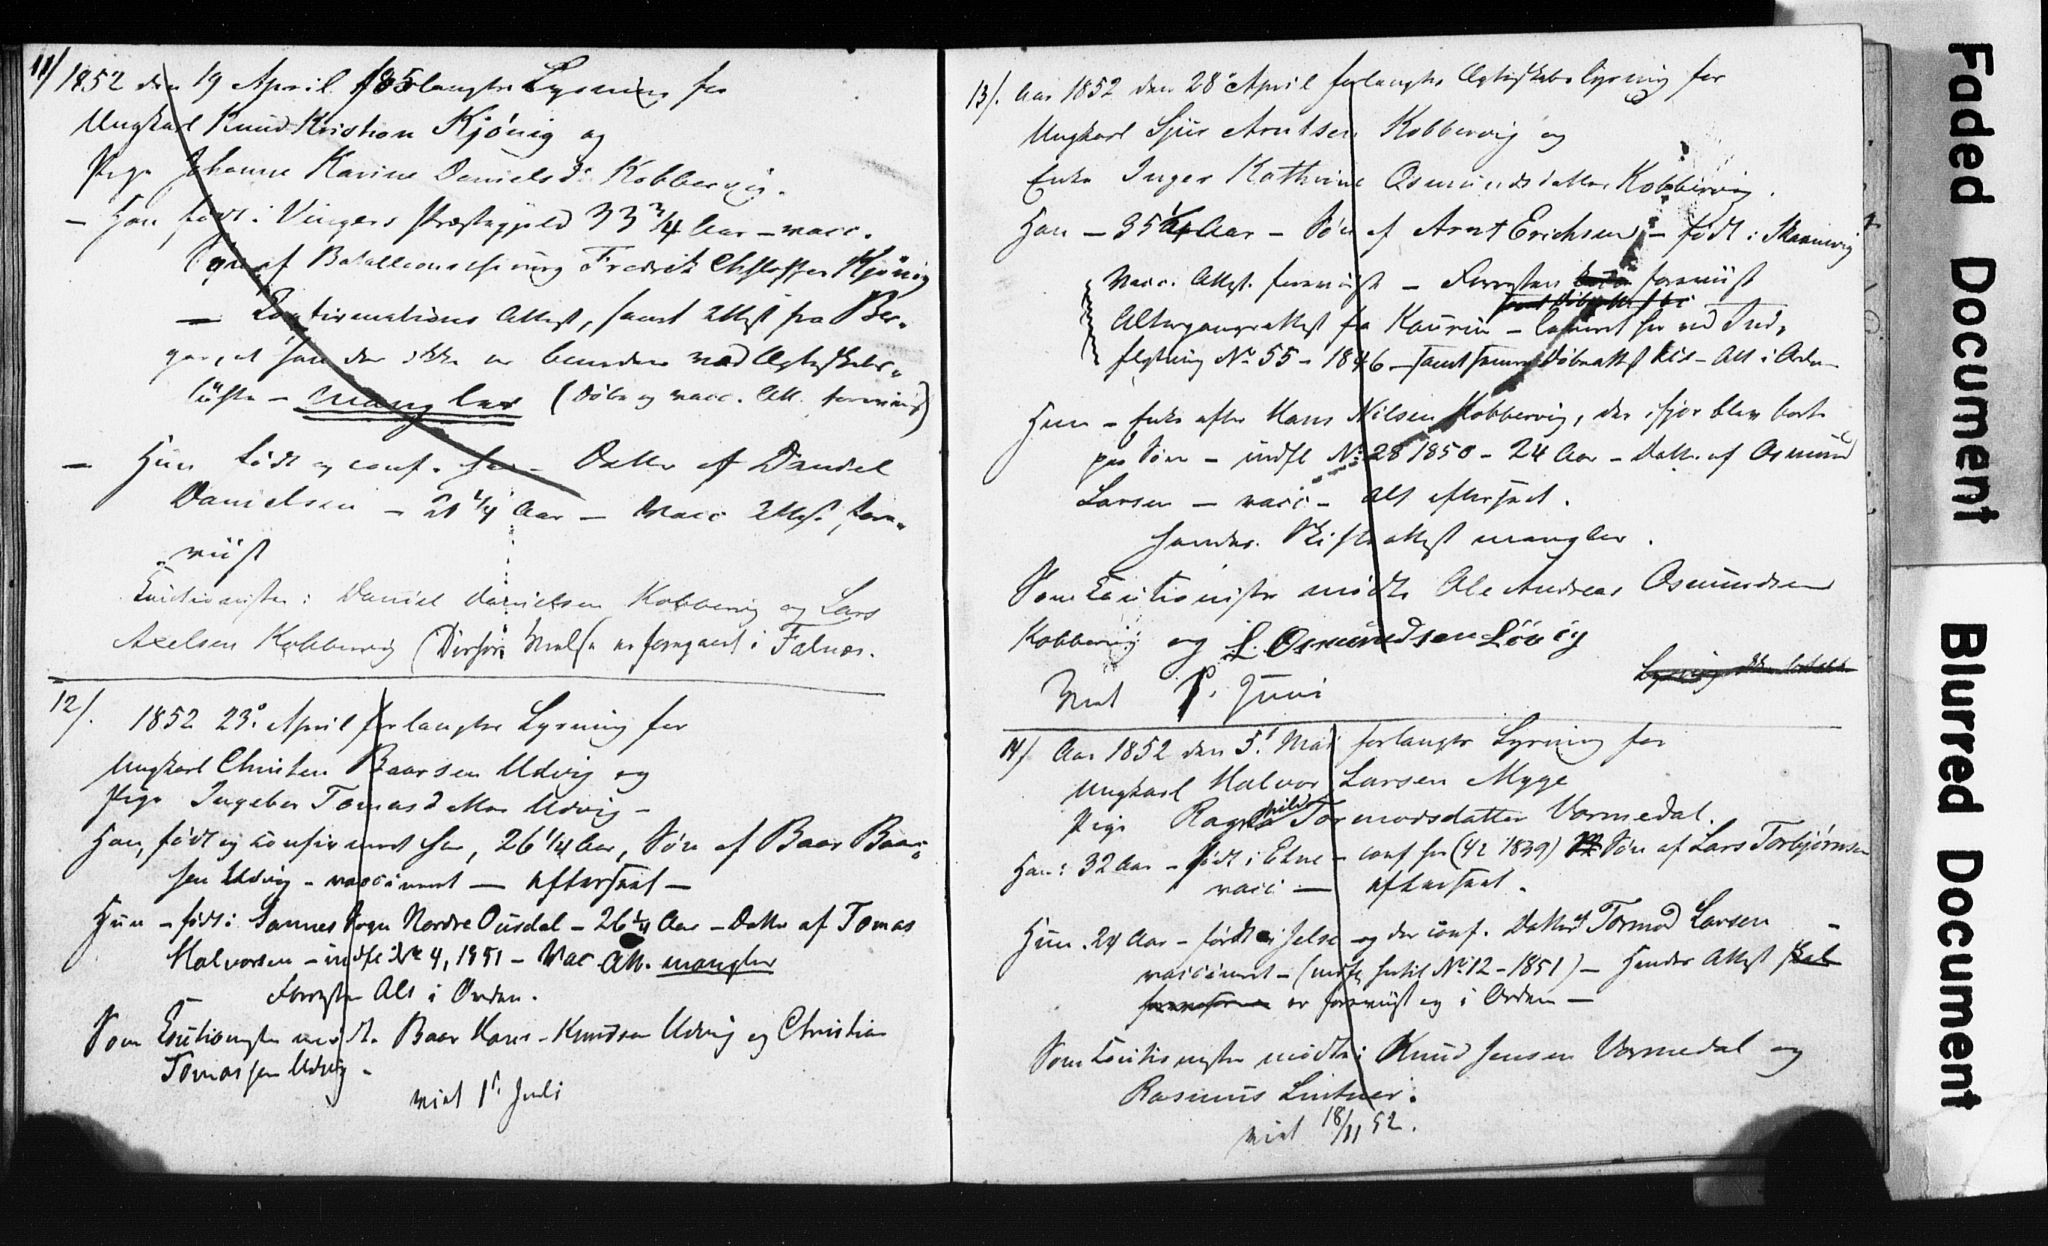 11/ 1852 den 19 April forlangtes Lysning for
Ungkarl Knud Kristian Kjönig og
Pige Johanne Karine Danielsd. Kobbervig.
– Han født i Vingers Præstegjeld 33 3/4 Aar – vacc.
Søn af Fredrik Kjönig
– Confirmations Attest, samt Attest fra Ber-
gen, at han der ikke er bunden ved Ægteskabs-
löfte – mangler (Döbe og vacc. Att. foreviist)
– Hun født og conf. her – Datter af Daniel
Danielsen – 21 1/4 Aar – Vacc Attest fore-
viist
Cautionister: Daniel Danielsen Kobbervig og Lars
Axelsen Kobbervig ( i Falnæs.
12/. 1852 23. April forlangtes Lysning for
Ungkarl Christen Baarsen Udvig og
Pige Ingebor Tomasdatter Udvig –
Han, født og confirmeret her, 26 1/4 Aar, Søn af Baar Baar-
sen Udvig – vaccineret – efterseet –
Hun – født i Sogn Nordre Ousdal – 26 1/4 Aar – Datter af Tomas
Halvorsen – indfl. No 4, 1851 – Vac Att. mangler
Forresten Alt i Orden.
Som Cautionister mødte Baar Hans-Knudsen Udvig og Christian
Tomassen Udvig –
viet 1. Juli
13/. Aar 1852 den 28 April forlangtes Ægteskabs lysning for
Ungkarl Sjur Arntsen Kobbervig og
Enke Inger Kathrine Osmundsdatter Kobbervig.
Han – 35 1/4 Aar – Søn af Arnt Erichsen – født i Skaanevig
Vacc. Attest foreviist – Forresten foreviist
Altergangsattest fra – ved Ind-
flytning No 55 – 1846 – samt Döbeattest – Alt i Orden –
Hun – Enke efter Hans Nilsen Kobbervig, der ifjor blev borte
paa Søen – indfl No 28 1850 – 24 Aar – Datter af Osmund
Larsen – vacc – Alt efterseet.
Hendes Skifteattest mangler.
Som Cautionister mødte Ole Andreas Osmundsen
Kobbervig og L. Osmundsen Lövig
Lysning ikke betalt
Viet 1. Juni
14/ Aar 1852 den 5. Mai forlangtes Lysning for
Ungkarl Halvor Larsen Myge
Pige Ragnhild Tormodsdatter Varmedal.
Han: 32 Aar – født i Etne – conf her (42 1839) Søn af Lars Torbjørnsen
vacc – efterseet.
Hun. 24 Aar – født i Jelse – og der conf. Datter af Tormod Larsen –
vaccineret – (indfl hertil No 12 – 1851) – Hendes Attest skal
er foreviist og i Orden –
Som Cautionister mødte: Knud Jensen Varmedal og
Rasmus Lintner.
viet 18/11 52.
Faded Document
Blurred Document